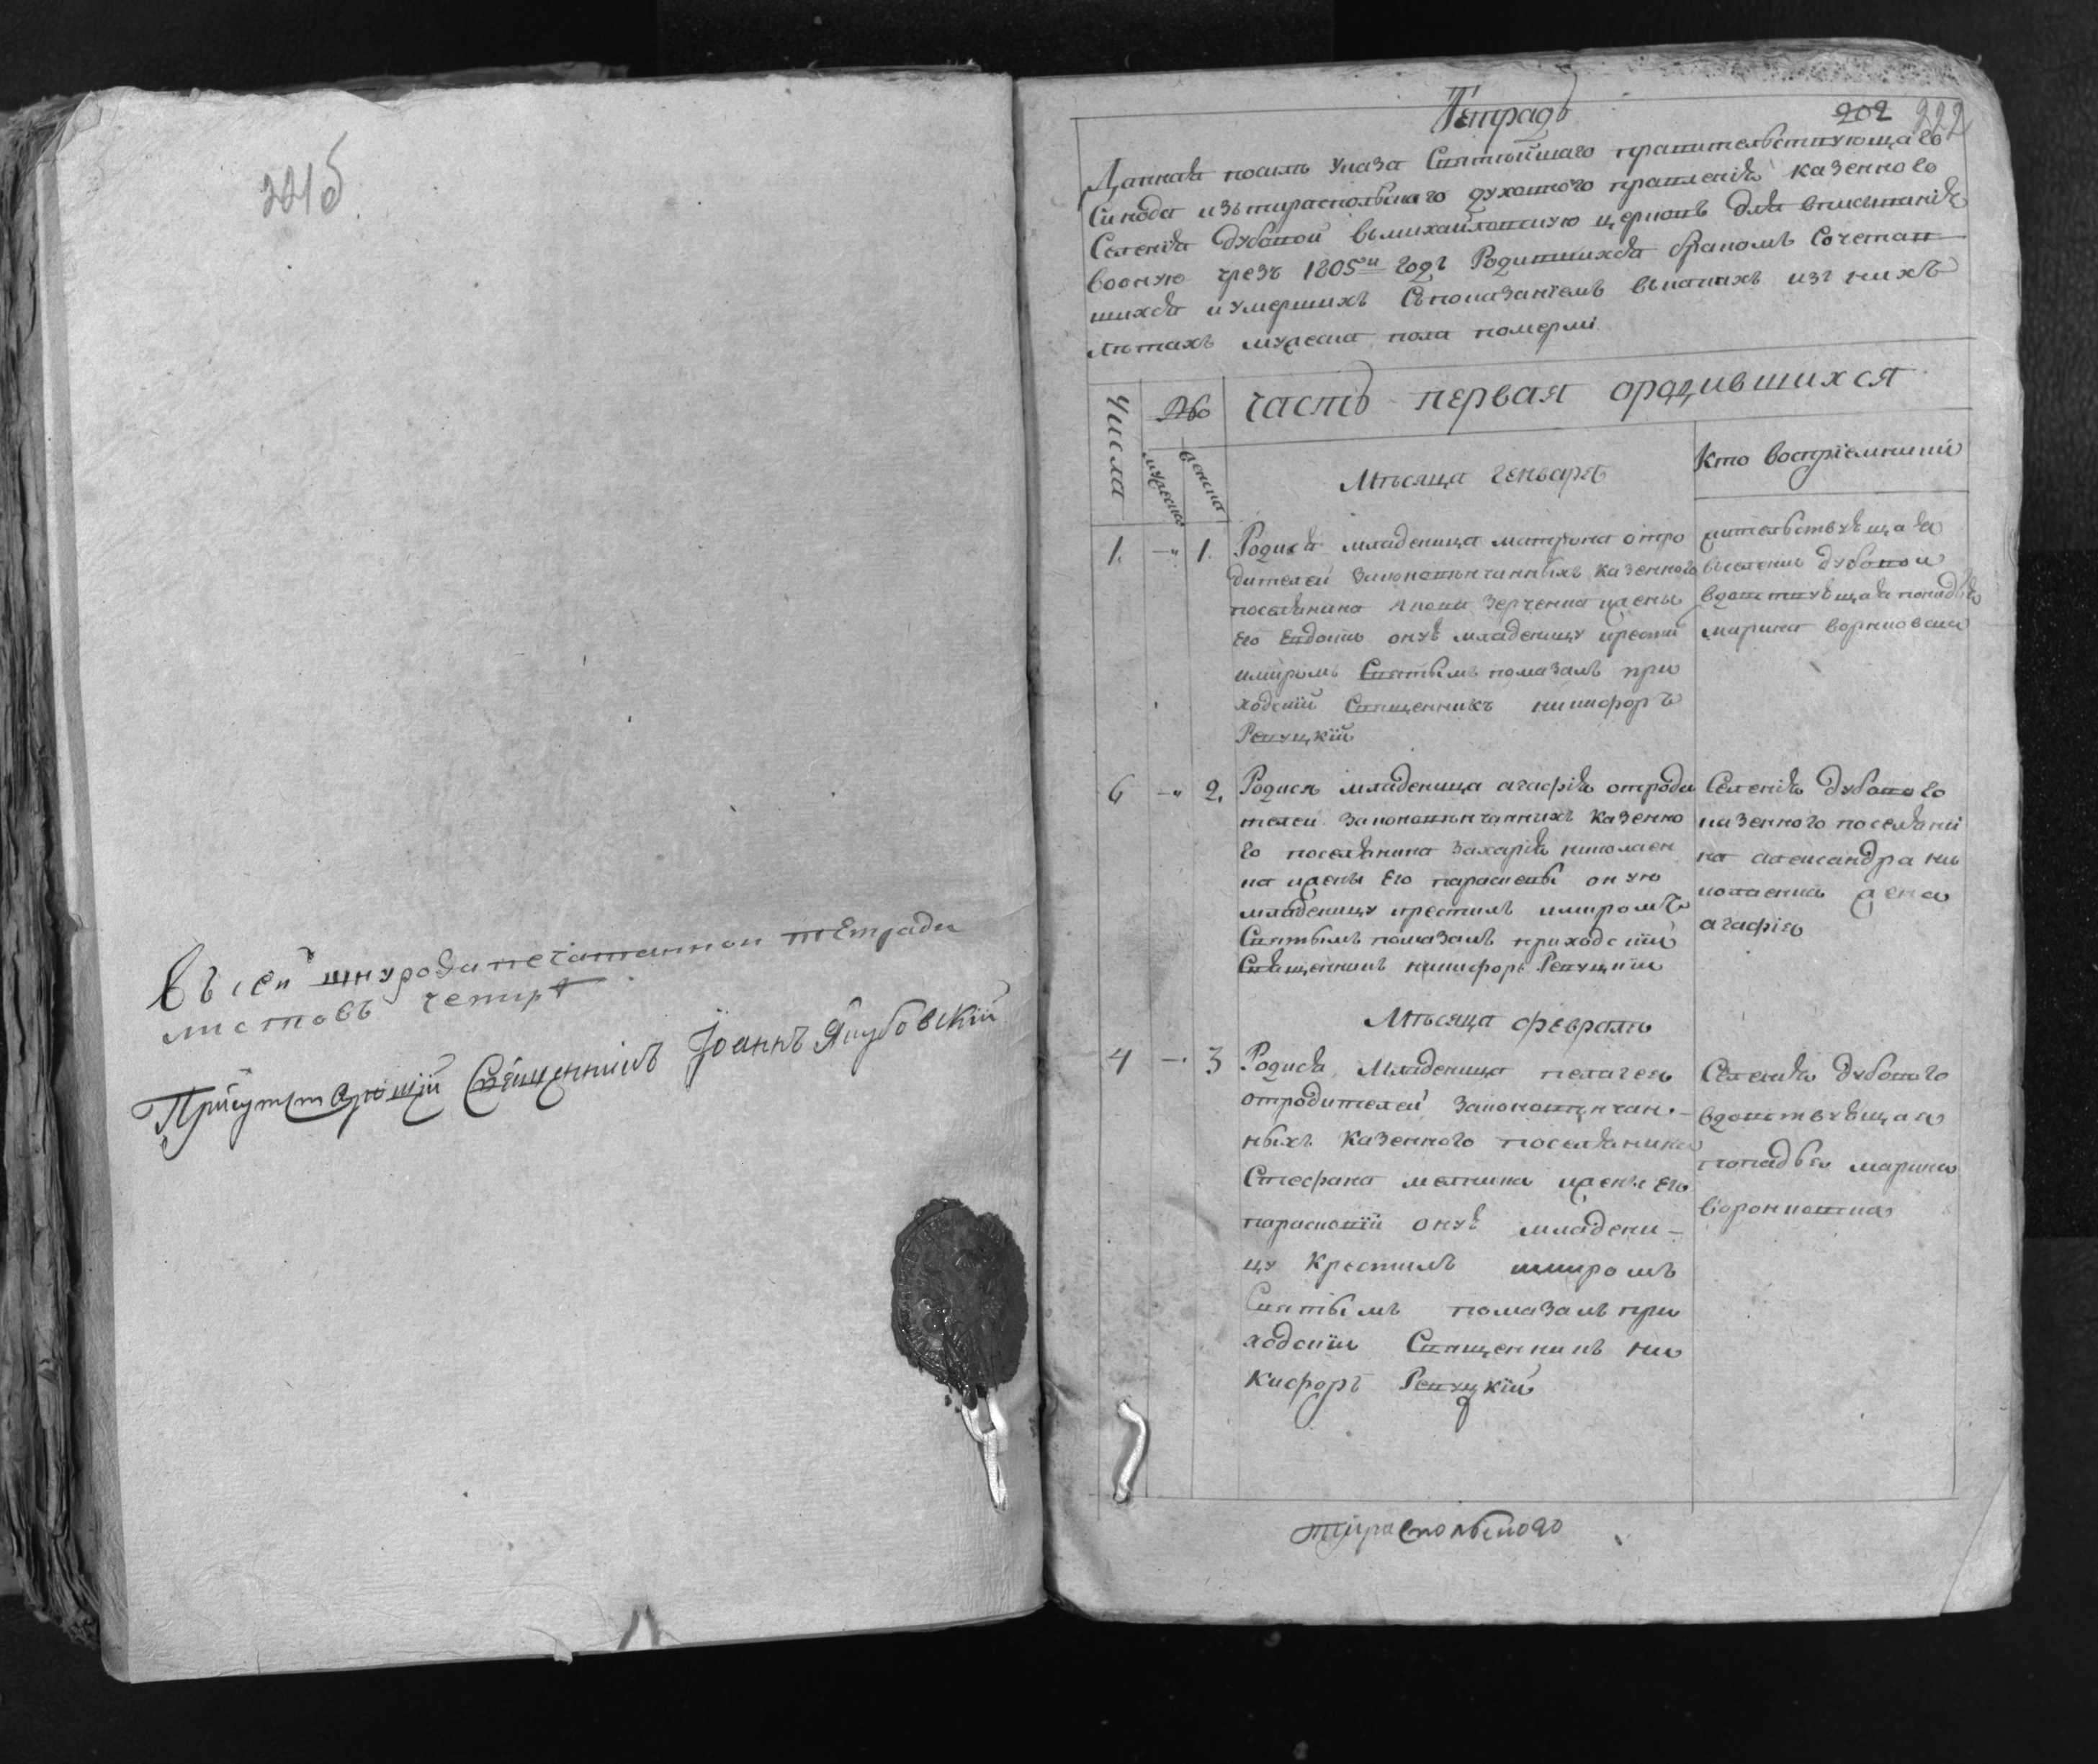 221б
Въ сей шнурозапечатанной тетради
листовъ четирѣ
Присутствующій Священникъ Іоаннъ Якубовскій
Тетрадь
202 222
Данная посилѣ указа Святѣйшаго правительствующаго
Синода изътираспольскаго духовного правленія казенного
Селенія дубовой вьмихайловскую церковь для вписыванія
вооную чрезъ 1805й годъ Родившихся бракомъ Сочетав
шихся и умершихъ Съпоказаніемъ вькакихъ изъ нихъ
лѣтахъ мужеска пола померли
Числа
мужеска
женска
часть первая ородившихся
Мѣсяца геньваря
Кто воспріемники
1. — 1.
Родися младеница матрона отро
дителей законовѣнчанныхъ казенного
поселянина Зерченка жены
его Евдокіи онуя младеницу крестил
имиромъ Святымъ помазалъ при
ходскій Священникъ никифоръ
Ревуцкій
жительствуящая
въселении дубовои
вдовствуящая попадья
марина воронковскаи
6 — 2.
Родися младеница агафія отроди
телей законовѣнчанныхъ казенно
го поселянина Захарія николаен
ка жены Его параскевы оную
младеницу крестилъ имиромъ
Святымъ помазалъ приходскій
Священникъ никифоръ Ревуцкій
Селенія дубового
казенного поселяни
на александра ни
колаенка жена
агафія
Мѣсяца февраля
4 — 3
Родися Младеница пелагея
отродителей законовѣнчан-
ныхъ казенного поселянина
Стефана мелника жены Его
парасковіи онуя младени-
цу крестилъ имиромъ
Святымъ помазалъ при
ходскіи Священникъ ни
кифоръ Ревуцкій
Селенія дубового
вдовствуящая
попадья марина
воронковска
тираспольского